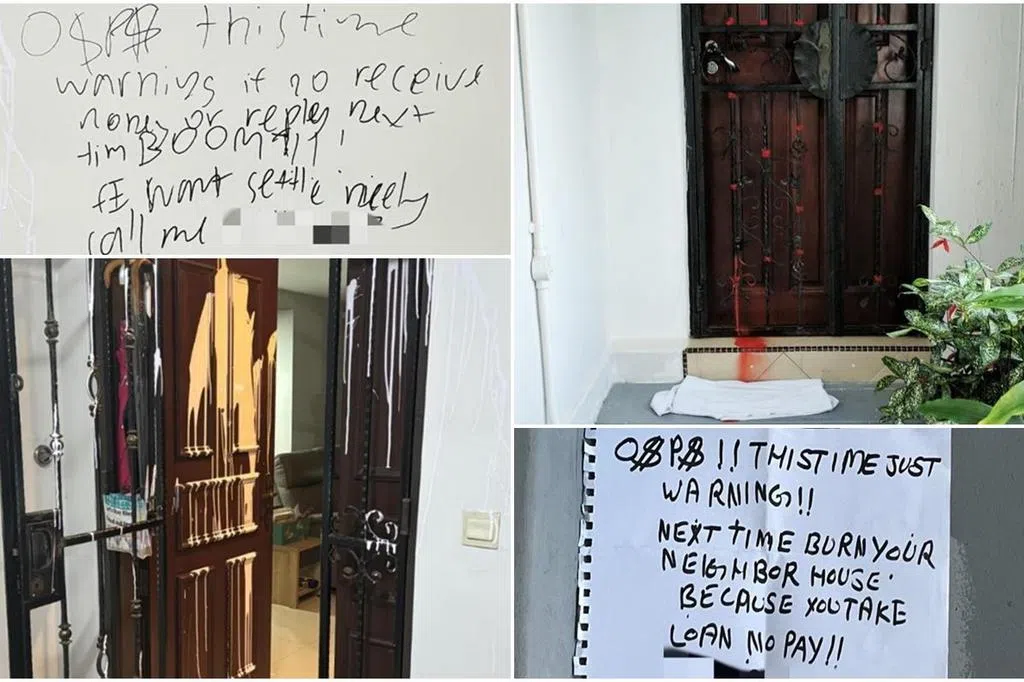 O$P$ this time
warning if no receive
none or reply next
tim BOOM!!!
If want settle nicely
call me
O$P$ !! THIS TIME JUST
WARNING!!
NEXT TIME BURN YOUR
NEIGHBOR HOUSE.
BECAUSE YOU TAKE
LOAN NO PAY!!